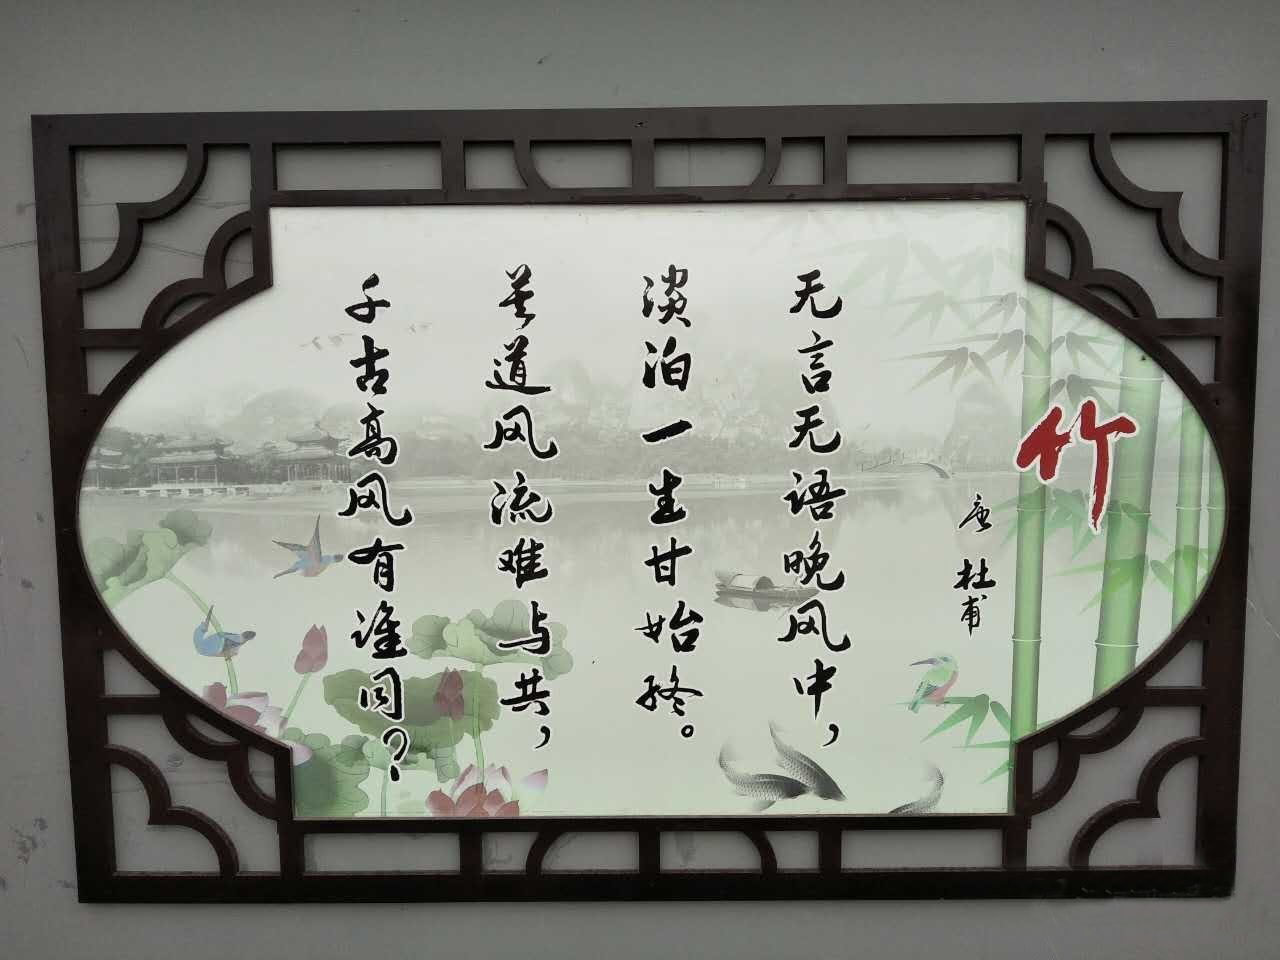 竹
唐 杜甫
无言无语晚风中，
淡泊一生甘始终。
莫道风流难与共，
千古高风有谁同？